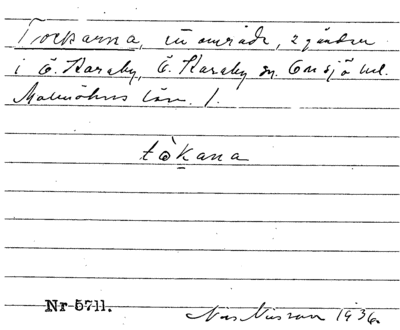 Tockarna, ett område, 2 gårdar
i Ö. Karaby, Ö. Karaby sn. Onsjö hd.
Malmöhus län. 1.
tòkana
Nr 5711.
Nils Nilsson 1936.